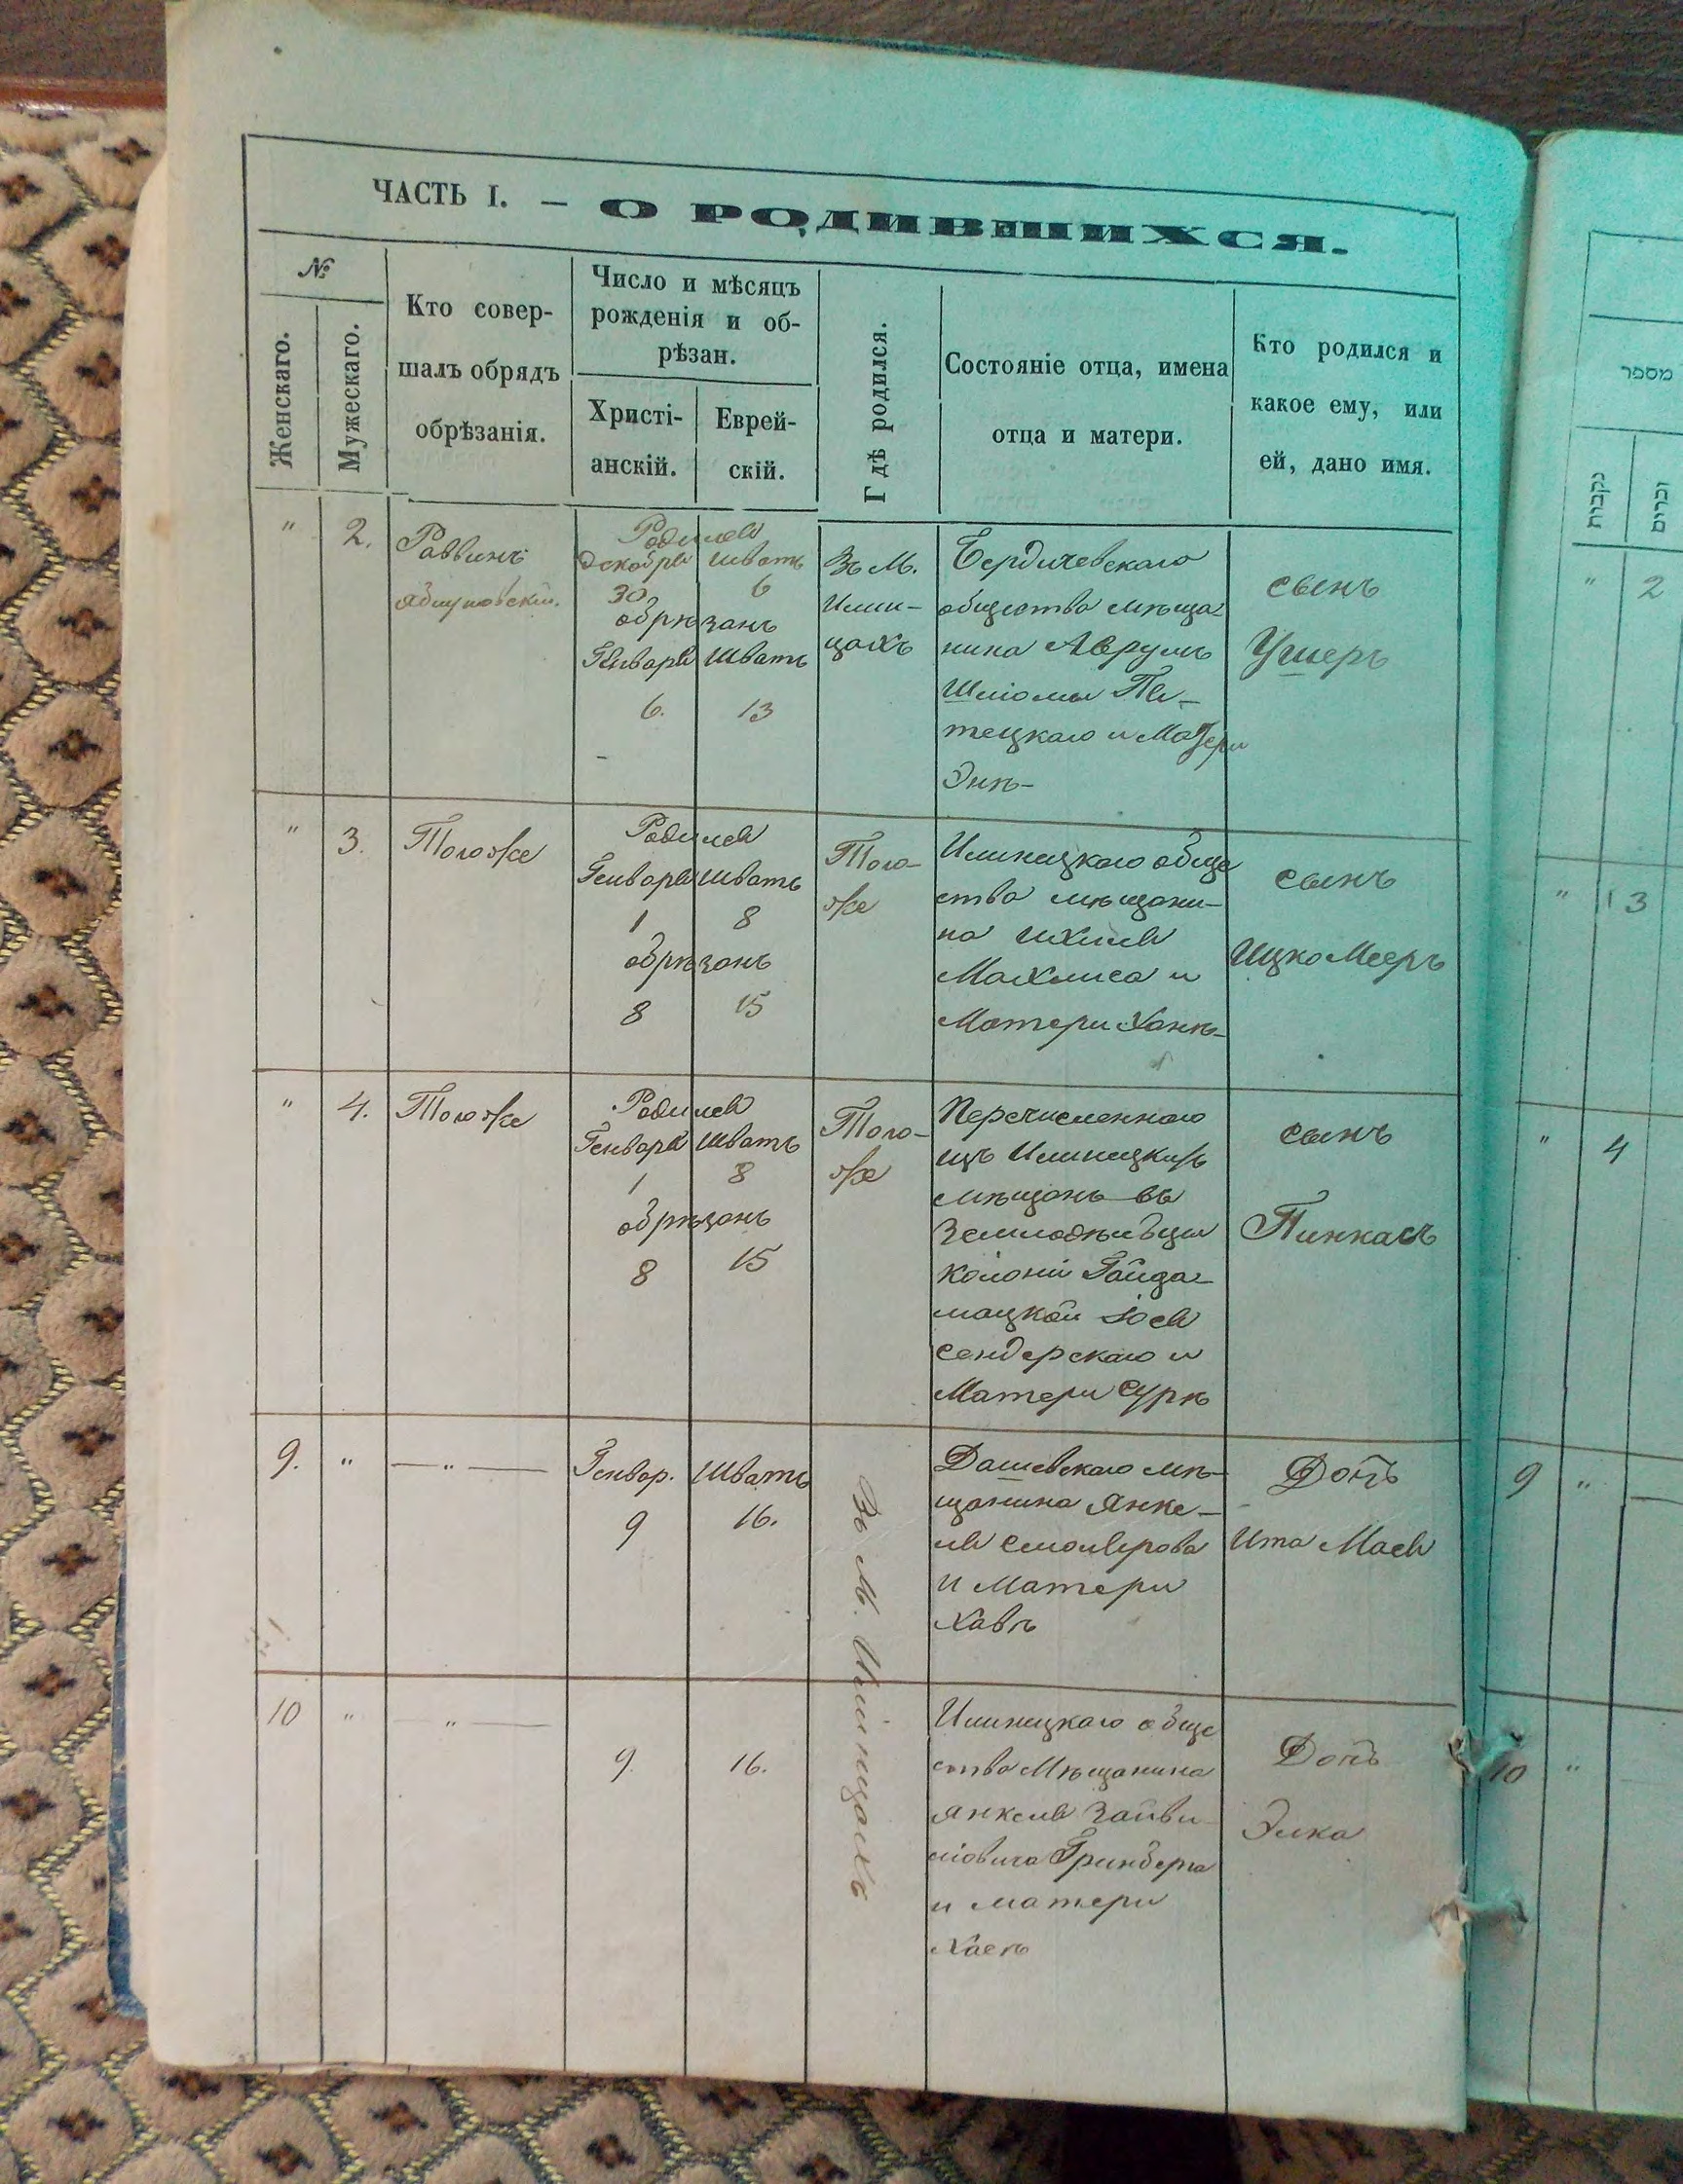 ЧАСТЬ I. – О РОДИВШИХСЯ.
№
Женскаго.
Мужескаго.
Кто совер-
шалъ обрядъ
обрѣзанія.
Число и мѣсяцъ
рожденія и об-
рѣзан.
Христі-
анскій.
Еврей-
скій.
Гдѣ родился.
Состояніе отца, имена
отца и матери.
Кто родился и
какое ему, или
ей, дано имя.
" 2.
Раввинъ
Родился
декабря Шватъ
30 6
обрѣзанъ
Генваря Шватъ
6. 13
Въ М.
Илин-
цахъ
Бердичевскаго
общества мѣща-
нина Аврумъ
Шліомы
тецкаго и Матери
Энѣ-
сынъ
Ушеръ
" 3.
Тогоже
Родился
Генваря Шватъ
1 8
обрѣзанъ
8 15
Того-
же
Илинецкаго обще
ства мѣщани-
на Ихиля
Махлиса и
Матери Ханѣ-
сынъ
Ицко Мееръ
" 4.
Тогоже
Родился
Генваря Шватъ
1 8
обрѣзанъ
8 15
Того-
же
Перечисленнаго
изъ Илинецкихъ
мѣщанъ въ
Земледѣльцы
Колоніи Гайда-
мацкой Іося
Сендерскаго и
Матери Суръ
сынъ
Пинкасъ
9. " — " —
Генвар. Шватъ
9 16.
Въ М. Илинцахъ
Дашевскаго мѣ-
щанина Янке-
ля Смолярова
и Матери
Хавъ
Дочь
Ита Мася
10 " — " —
9. 16.
Илинецкаго обще
ства Мѣщанина
Янкеля Зайви
ліовича Гринберга
и матери
Хаеъ
Дочь
Элка
מספר
נקבות
זכרים
" 2
" 3
" 4
9 "
10 "